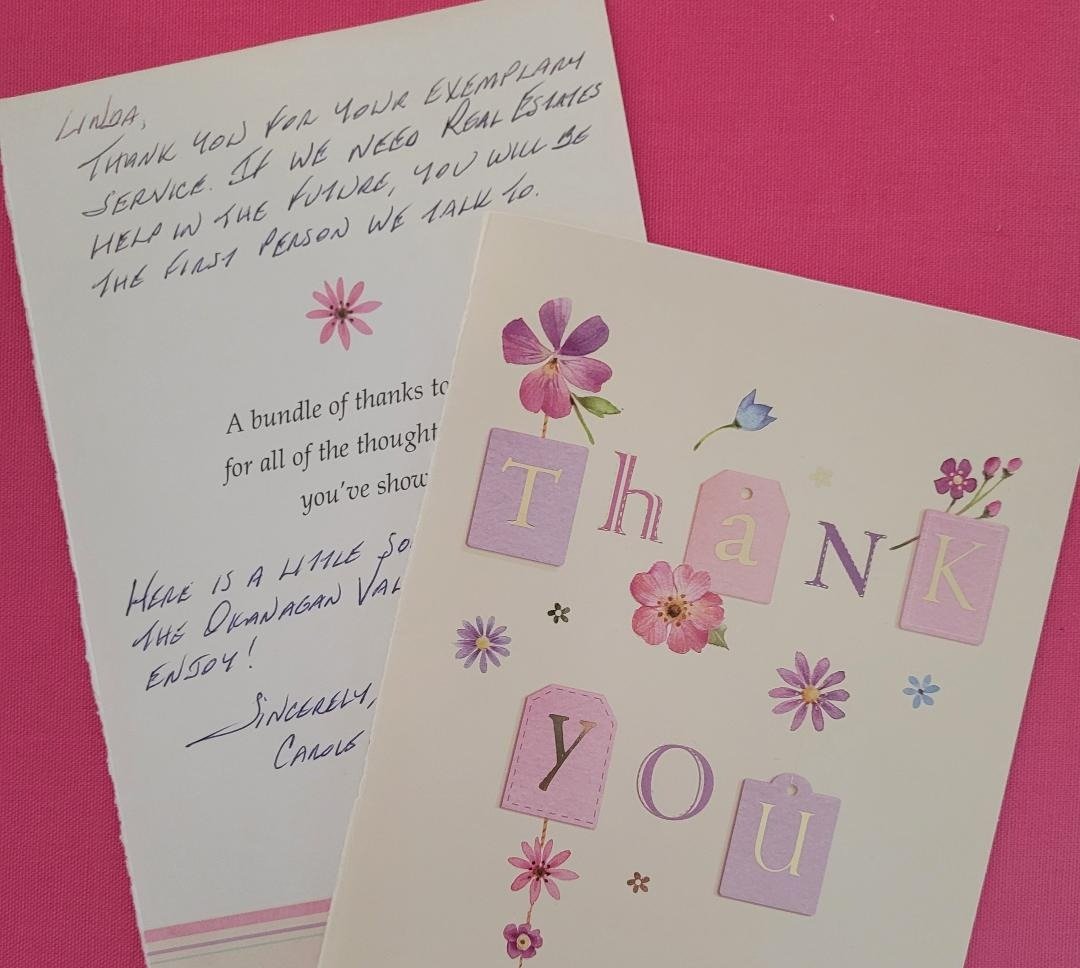 LINDA,
THANK YOU FOR YOUR EXEMPLARY
SERVICE. IF WE NEED REAL ESTATES
HELP IN THE FUTURE, YOU WILL BE
THE FIRST PERSON WE TALK TO.
A bundle of thanks to
for all of the thought
you've show
HERE IS A LITTLE SO
THE OKANAGAN VAL
ENJOY!
SINCERELY,
CAROLE
Thank
you